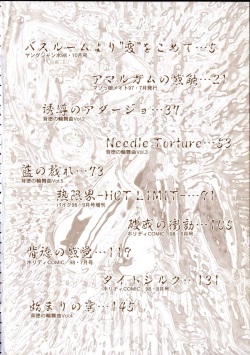 バスルームより"愛"をこめて…5
ヤングシャンボ98・10月号
アマルガムの感触…21
マゾっ娘メイト97・7月発行
誘導のアダージョ…37
背徳の輪舞曲Vol.2
Needle Torture…53
背徳の輪舞曲Vol.3
藍の戯れ…73
背徳の輪舞曲Vol.5
熱限界-HOT LIMIT-…91
バイク98・9月号増刊
破戒の衝動…105
ホリディCOMIC・98・8月号
背徳の感覚…119
ホリディCOMIC・98・7月号
タイトシルク…131
ホリディCOMIC・98・9月号
始まりの宴…145
背徳の輪舞曲Vol.4